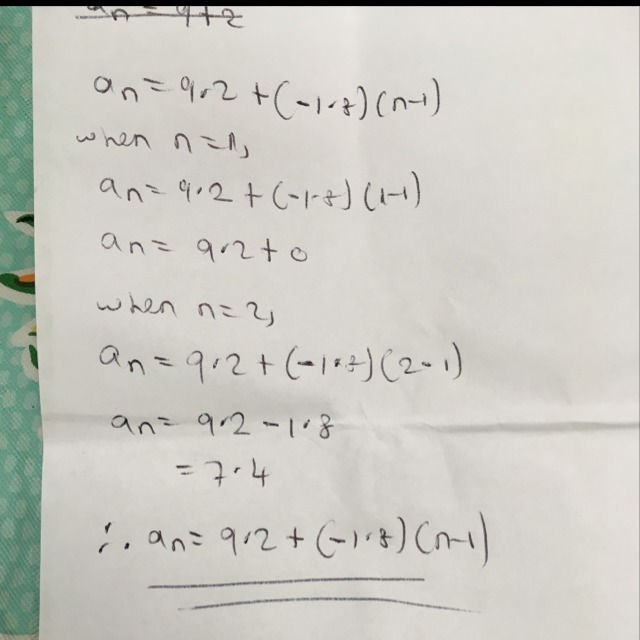 an = 9+2
an = 9.2 + (-1.8)(n-1)
when n=1,
an = 9.2 + (-1.8)(1-1)
an = 9.2 + 0
when n=2,
an = 9.2 + (-1.8)(2-1)
an = 9.2 - 1.8
= 7.4
∴ an = 9.2 + (-1.8)(n-1)